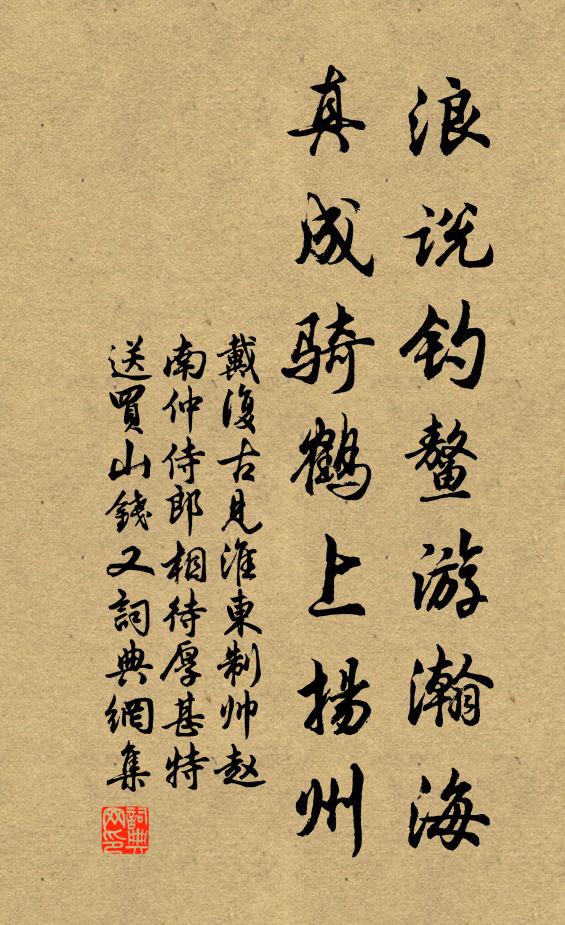 浪说钓鳌游瀚海
真成骑鹤上揚州
戴復古見淮東制帅赵
南仲侍郎相待厚甚特
送買山錢又詞典網集
詞典
网印